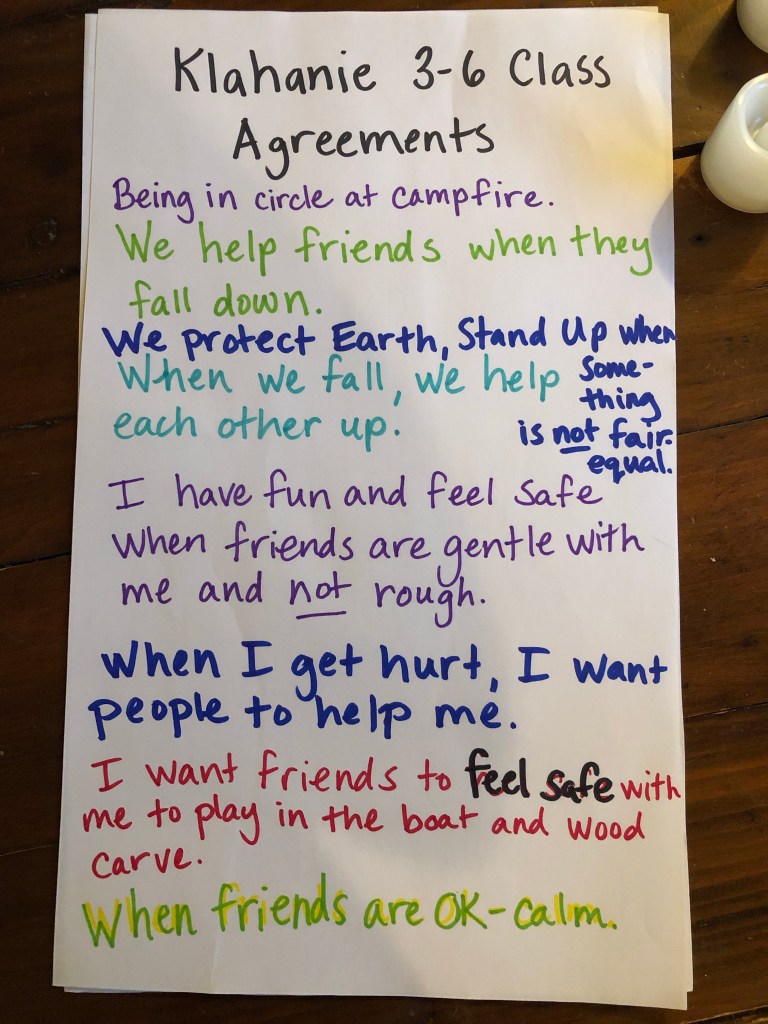 Klahanie 3-6 Class
Agreements
Being in circle at campfire.
We help friends when they
fall down.
We protect Earth, Stand Up when
some-
thing
is not fair.
equal.
When we fall, we help
each other up.
I have fun and feel safe
when friends are gentle with
me and not rough.
When I get hurt, I want
people to help me.
I want friends to feel safe with
me to play in the boat and wood
carve.
When friends are OK-calm.